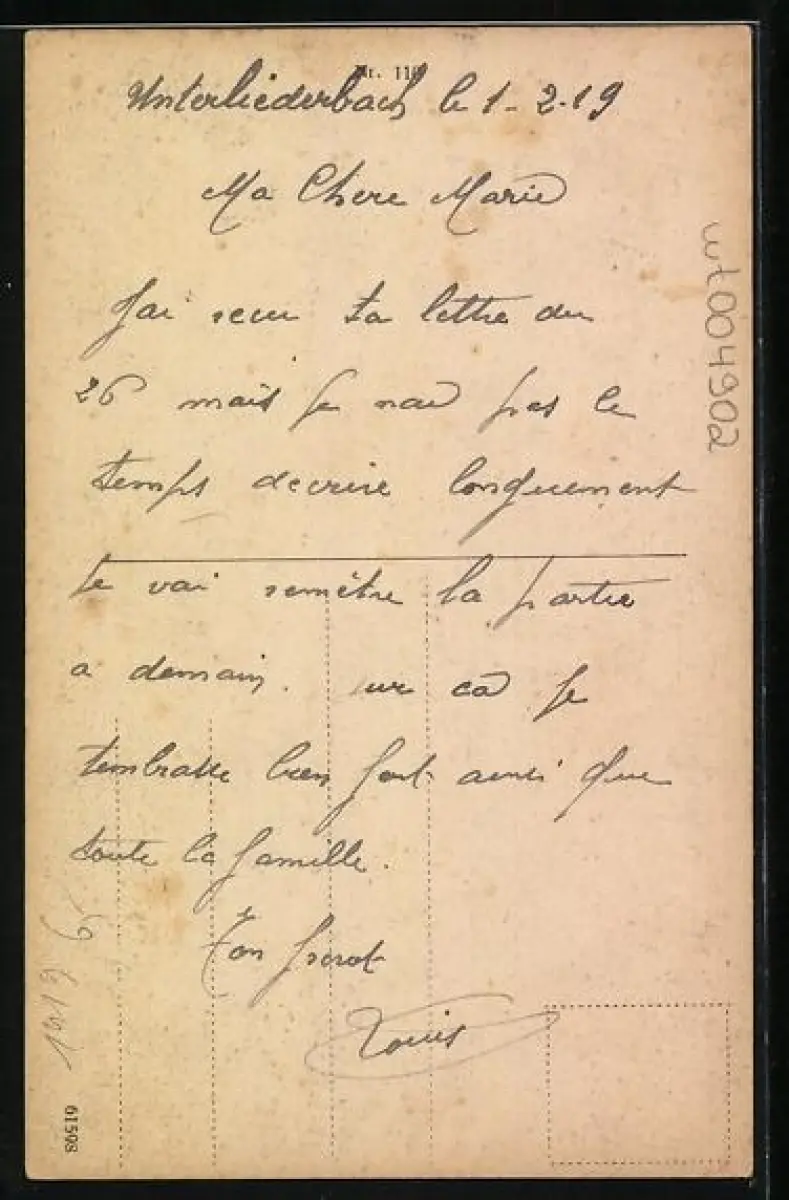 Nr. 11
Unterliederbach le 1-2-19
Ma Chere Marie
Jai recu ta lettre du
26 mais je nai pas le
temps decrire longuement
Je vai remêtre la partie
a demain. cas je
tembrasse bien fort ainsi que
toute la famille.
Ton frerot
Louis
wt004902
1919
61598